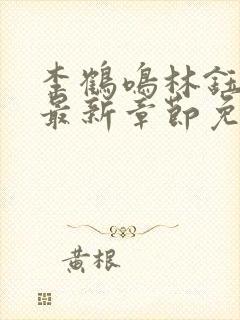 李鶴鳴林鈺
最新章節免
黃根